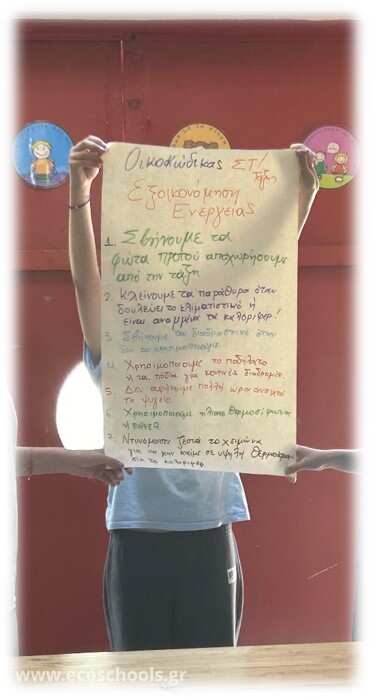 Οικοκώδικας ΣΤ'
Τάξη
Εξοικονόμηση
Ενέργειας
1. Σβήνουμε τα
φώτα προτού αποχωρήσουμε
από την τάξη
2. Κλείνουμε τα παράθυρα όταν
δουλεύει το κλιματιστικό ή
είναι αναμμένα τα καλοριφέρ!
3. Σβήνουμε τον διαδραστικό όταν
δεν τον χρησιμοποιούμε.
4. Χρησιμοποιούμε το ποδήλατο
ή τα πόδια για κοντινές διαδρομές.
5. Δεν αφήνουμε πολλή ώρα ανοιχτό
το ψυγείο
6. Χρησιμοποιούμε ηλιακό θερμοσίφωνα
7. Ντυνόμαστε ζεστά το χειμώνα
για να μην είναι σε υψηλή θερμοκρα-
σία το καλοριφέρ
www.ecoschools.gr